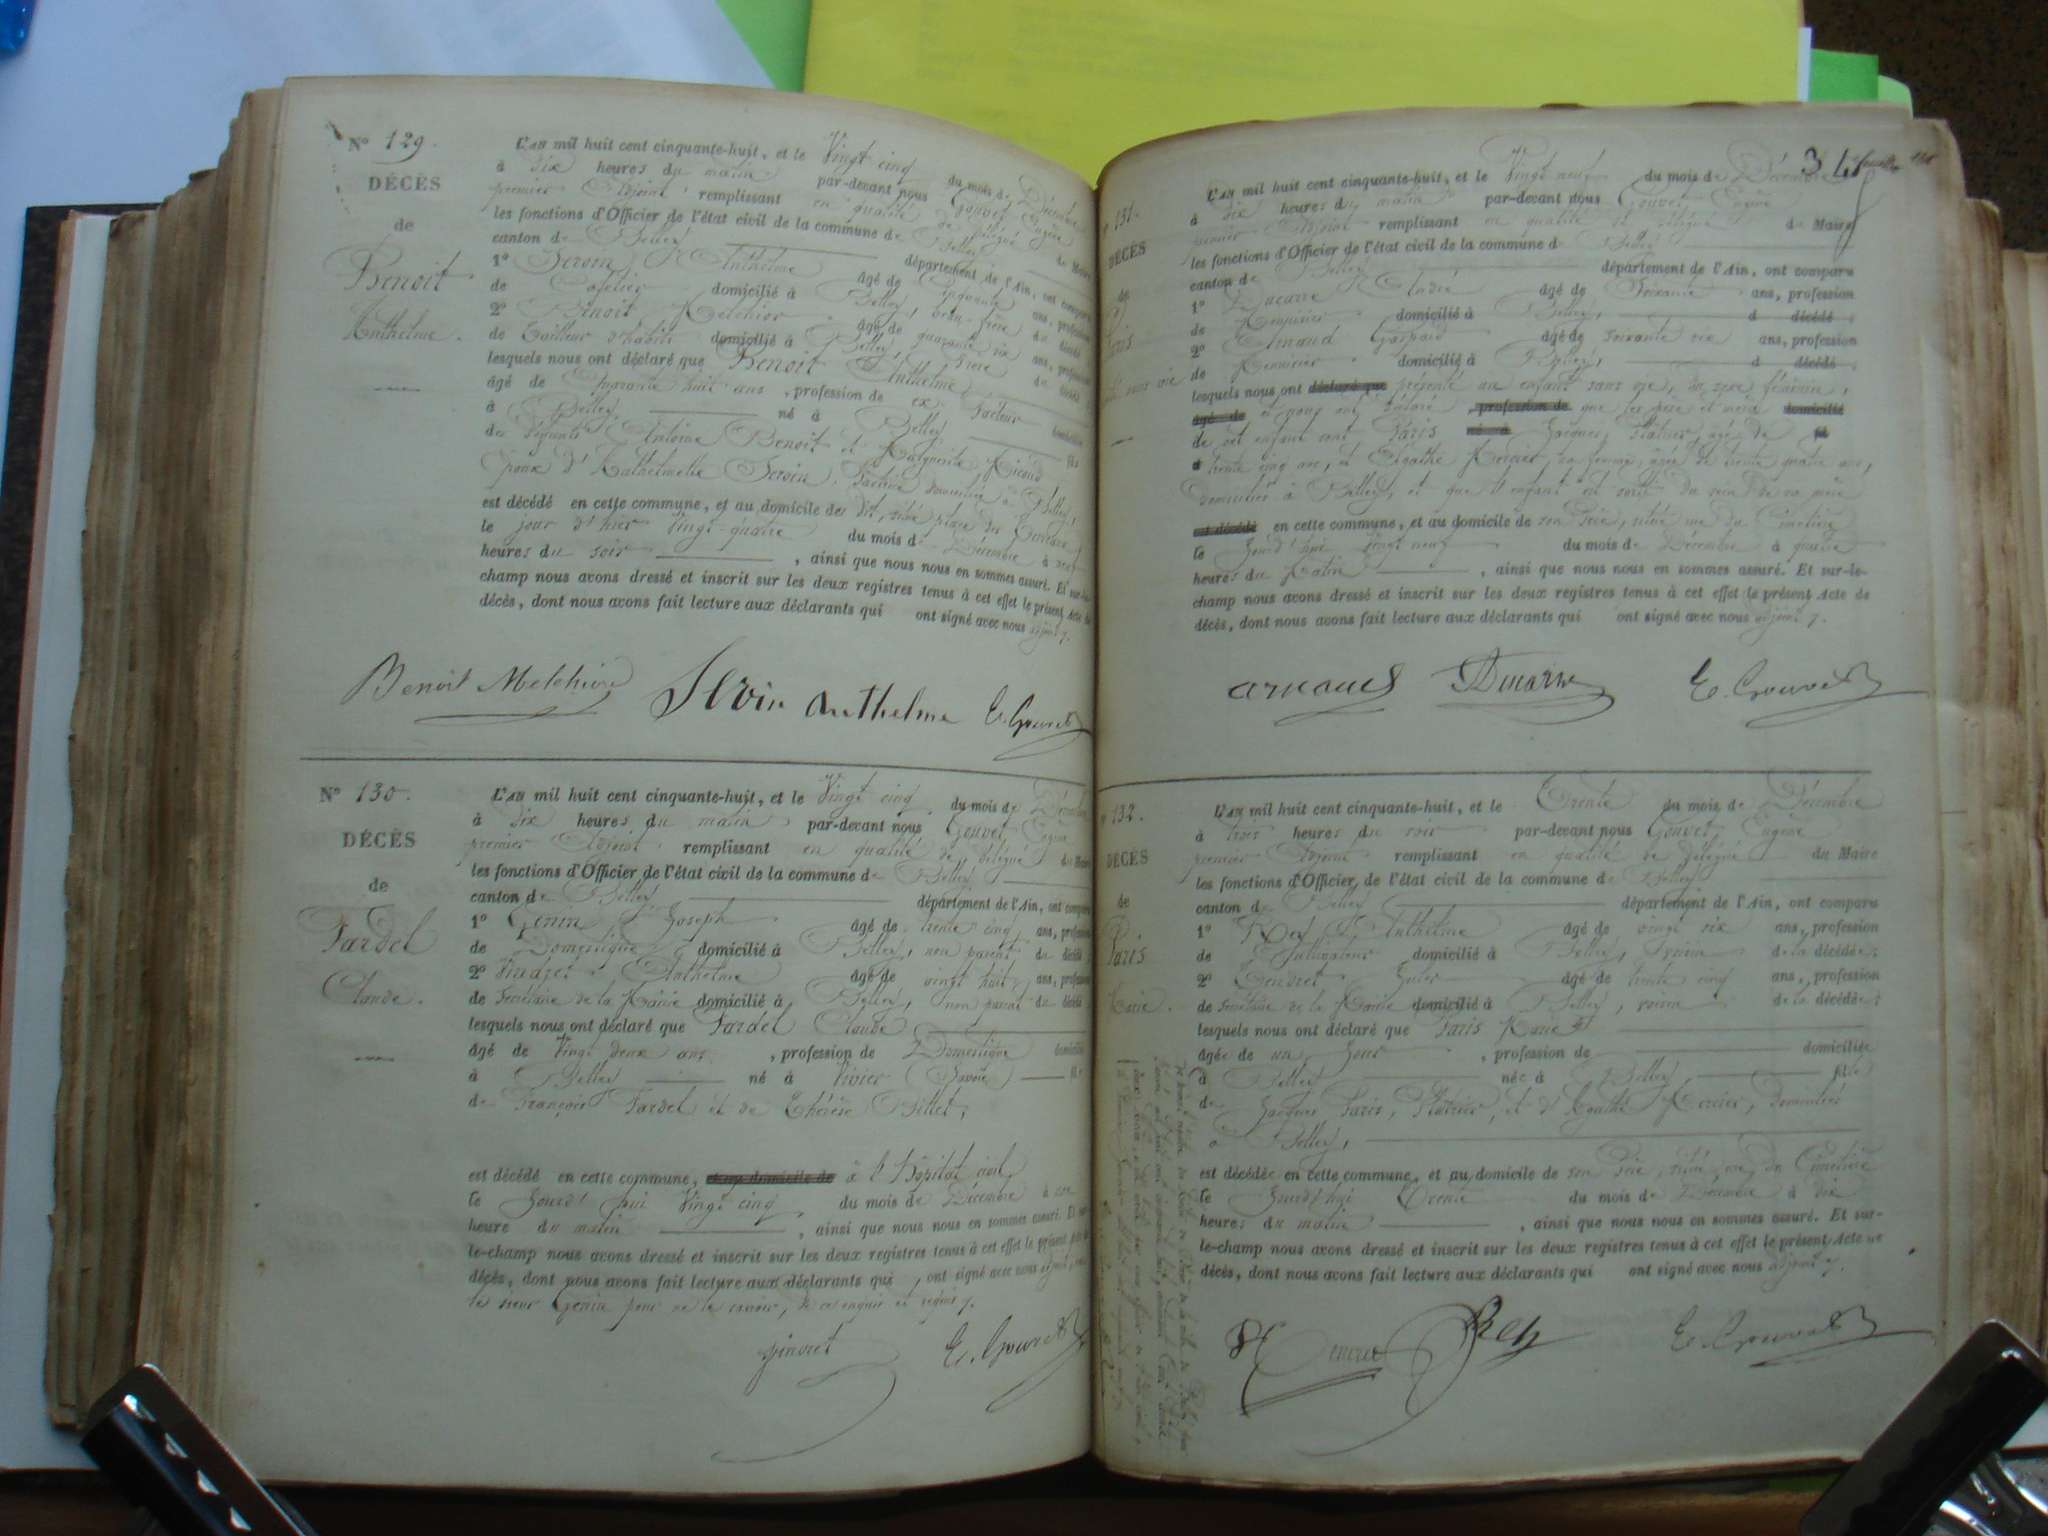 N° 129.
DÉCÈS
de
Benoit
Anthelme.
L'AN mil huit cent cinquante-huit, et le Vingt cinq du mois de Décembre
à dix heures du matin par-devant nous Gouvet Eugène
premier Adjoint remplissant en qualité de délégué du Maire
les fonctions d'Officier de l'état civil de la commune de Belley
canton de Belley département de l'Ain, ont comparu
1° Servin Anthelme âgé de cinquante ans, profession
de domicilié à Belley, beau-frère du décédé
2° Benoit Melchior âgé de quarante six ans, profession
de tailleur d'habits domicilié à Belley, frère du décédé
lesquels nous ont déclaré que Benoit Anthelme
âgé de quarante huit ans, profession de ex facteur domicilié
à Belley né à Belley fils
de défunts Antoine Benoit et Marguerite
époux d'Anthelmette Servin, domiciliée à Belley,
est décédé en cette commune, et au domicile de dit, situé place des
le jour d'hier vingt-quatre du mois de Décembre à
heures du soir, ainsi que nous nous en sommes assuré. Et sur-le-
champ nous avons dressé et inscrit sur les deux registres tenus à cet effet le présent Acte de
décès, dont nous avons fait lecture aux déclarants qui ont signé avec nous adjoint.
Benoit Melchior Servin Anthelme E. Gouvet
N° 130.
DÉCÈS
de
Fardel
Claude.
L'AN mil huit cent cinquante-huit, et le Vingt cinq du mois de Décembre
à dix heures du matin par-devant nous Gouvet Eugène
premier Adjoint remplissant en qualité de délégué du Maire
les fonctions d'Officier de l'état civil de la commune de Belley
canton de Belley département de l'Ain, ont comparu
1° Genin Joseph âgé de trente cinq ans, profession
de Domestique domicilié à Belley, non parent du décédé
2° Anthelme âgé de vingt huit ans, profession
de Secrétaire de la Mairie domicilié à Belley, non parent du décédé
lesquels nous ont déclaré que Fardel Claude
âgé de Vingt deux ans, profession de Domestique domicilié
à Belley né à Vivier (Savoie) fils
de François Fardel et de Thérèse Billet,
est décédé en cette commune, et au domicile de à l'Hôpital civil
le Jourd'hui Vingt cinq du mois de Décembre à une
heure du matin, ainsi que nous nous en sommes assuré. Et sur-
le-champ nous avons dressé et inscrit sur les deux registres tenus à cet effet le présent Acte de
décès, dont nous avons fait lecture aux déclarants qui ont signé avec nous adjoint, non
le sieur Genin pour ne le savoir, de ce enquis et requis.
E. Gouvet
131.
DÉCÈS
de
Paris
sans vie
L'AN mil huit cent cinquante-huit, et le Vingt neuf du mois de Décembre
à dix heures du matin par-devant nous Gouvet Eugène
premier Adjoint remplissant en qualité de délégué du Maire
les fonctions d'Officier de l'état civil de la commune de Belley
canton de Belley département de l'Ain, ont comparu
1° Ducarre André âgé de Soixante ans, profession
de domicilié à Belley, d décédé
2° Arnaud Gaspard âgé de soixante six ans, profession
de Menuisier domicilié à Belley, d décédé
lesquels nous ont déclaré que présenté un enfant sans vie, du sexe féminin,
âgé de et nous ont déclaré profession de que les père et mère domicilié
de cet enfant sont Paris né à Jacques, Platrier, âgé de
trente cinq ans, et Agathe Mercier, sa femme, âgée de trente quatre ans,
domiciliés à Belley, et que l'enfant est sorti du sein de sa mère
est décédé en cette commune, et au domicile de son Père, situé rue du Cimetière
le Jourd'hui vingt neuf du mois de Décembre à quatre
heures du Matin, ainsi que nous nous en sommes assuré. Et sur-le-
champ nous avons dressé et inscrit sur les deux registres tenus à cet effet le présent Acte de
décès, dont nous avons fait lecture aux déclarants qui ont signé avec nous adjoint.
Arnaud Ducarre E. Gouvet
132.
DÉCÈS
de
Paris
Marie.
L'AN mil huit cent cinquante-huit, et le Trente du mois de Décembre
à trois heures du soir par-devant nous Gouvet, Eugène
premier Adjoint remplissant en qualité de délégué du Maire
les fonctions d'Officier de l'état civil de la commune de Belley
canton de Belley département de l'Ain, ont comparu
1° Rey Anthelme âgé de vingt six ans, profession
de Cultivateur domicilié à Belley, voisin de la décédée;
2° Jules âgé de trente cinq ans, profession
de Secrétaire de la Mairie domicilié à Belley, voisin de la décédée;
lesquels nous ont déclaré que Paris Marie
âgée de un Jour, profession de domiciliée
à Belley née à Belley fille
de Jacques Paris, Platrier, et d'Agathe Mercier, domiciliés
à Belley,
est décédée en cette commune, et au domicile de son Père, situé rue du Cimetière
le Jourd'hui Trente du mois de Décembre à dix
heures du matin, ainsi que nous nous en sommes assuré. Et sur-
le-champ nous avons dressé et inscrit sur les deux registres tenus à cet effet le présent Acte de
décès, dont nous avons fait lecture aux déclarants qui ont signé avec nous adjoint.
Rey E. Gouvet